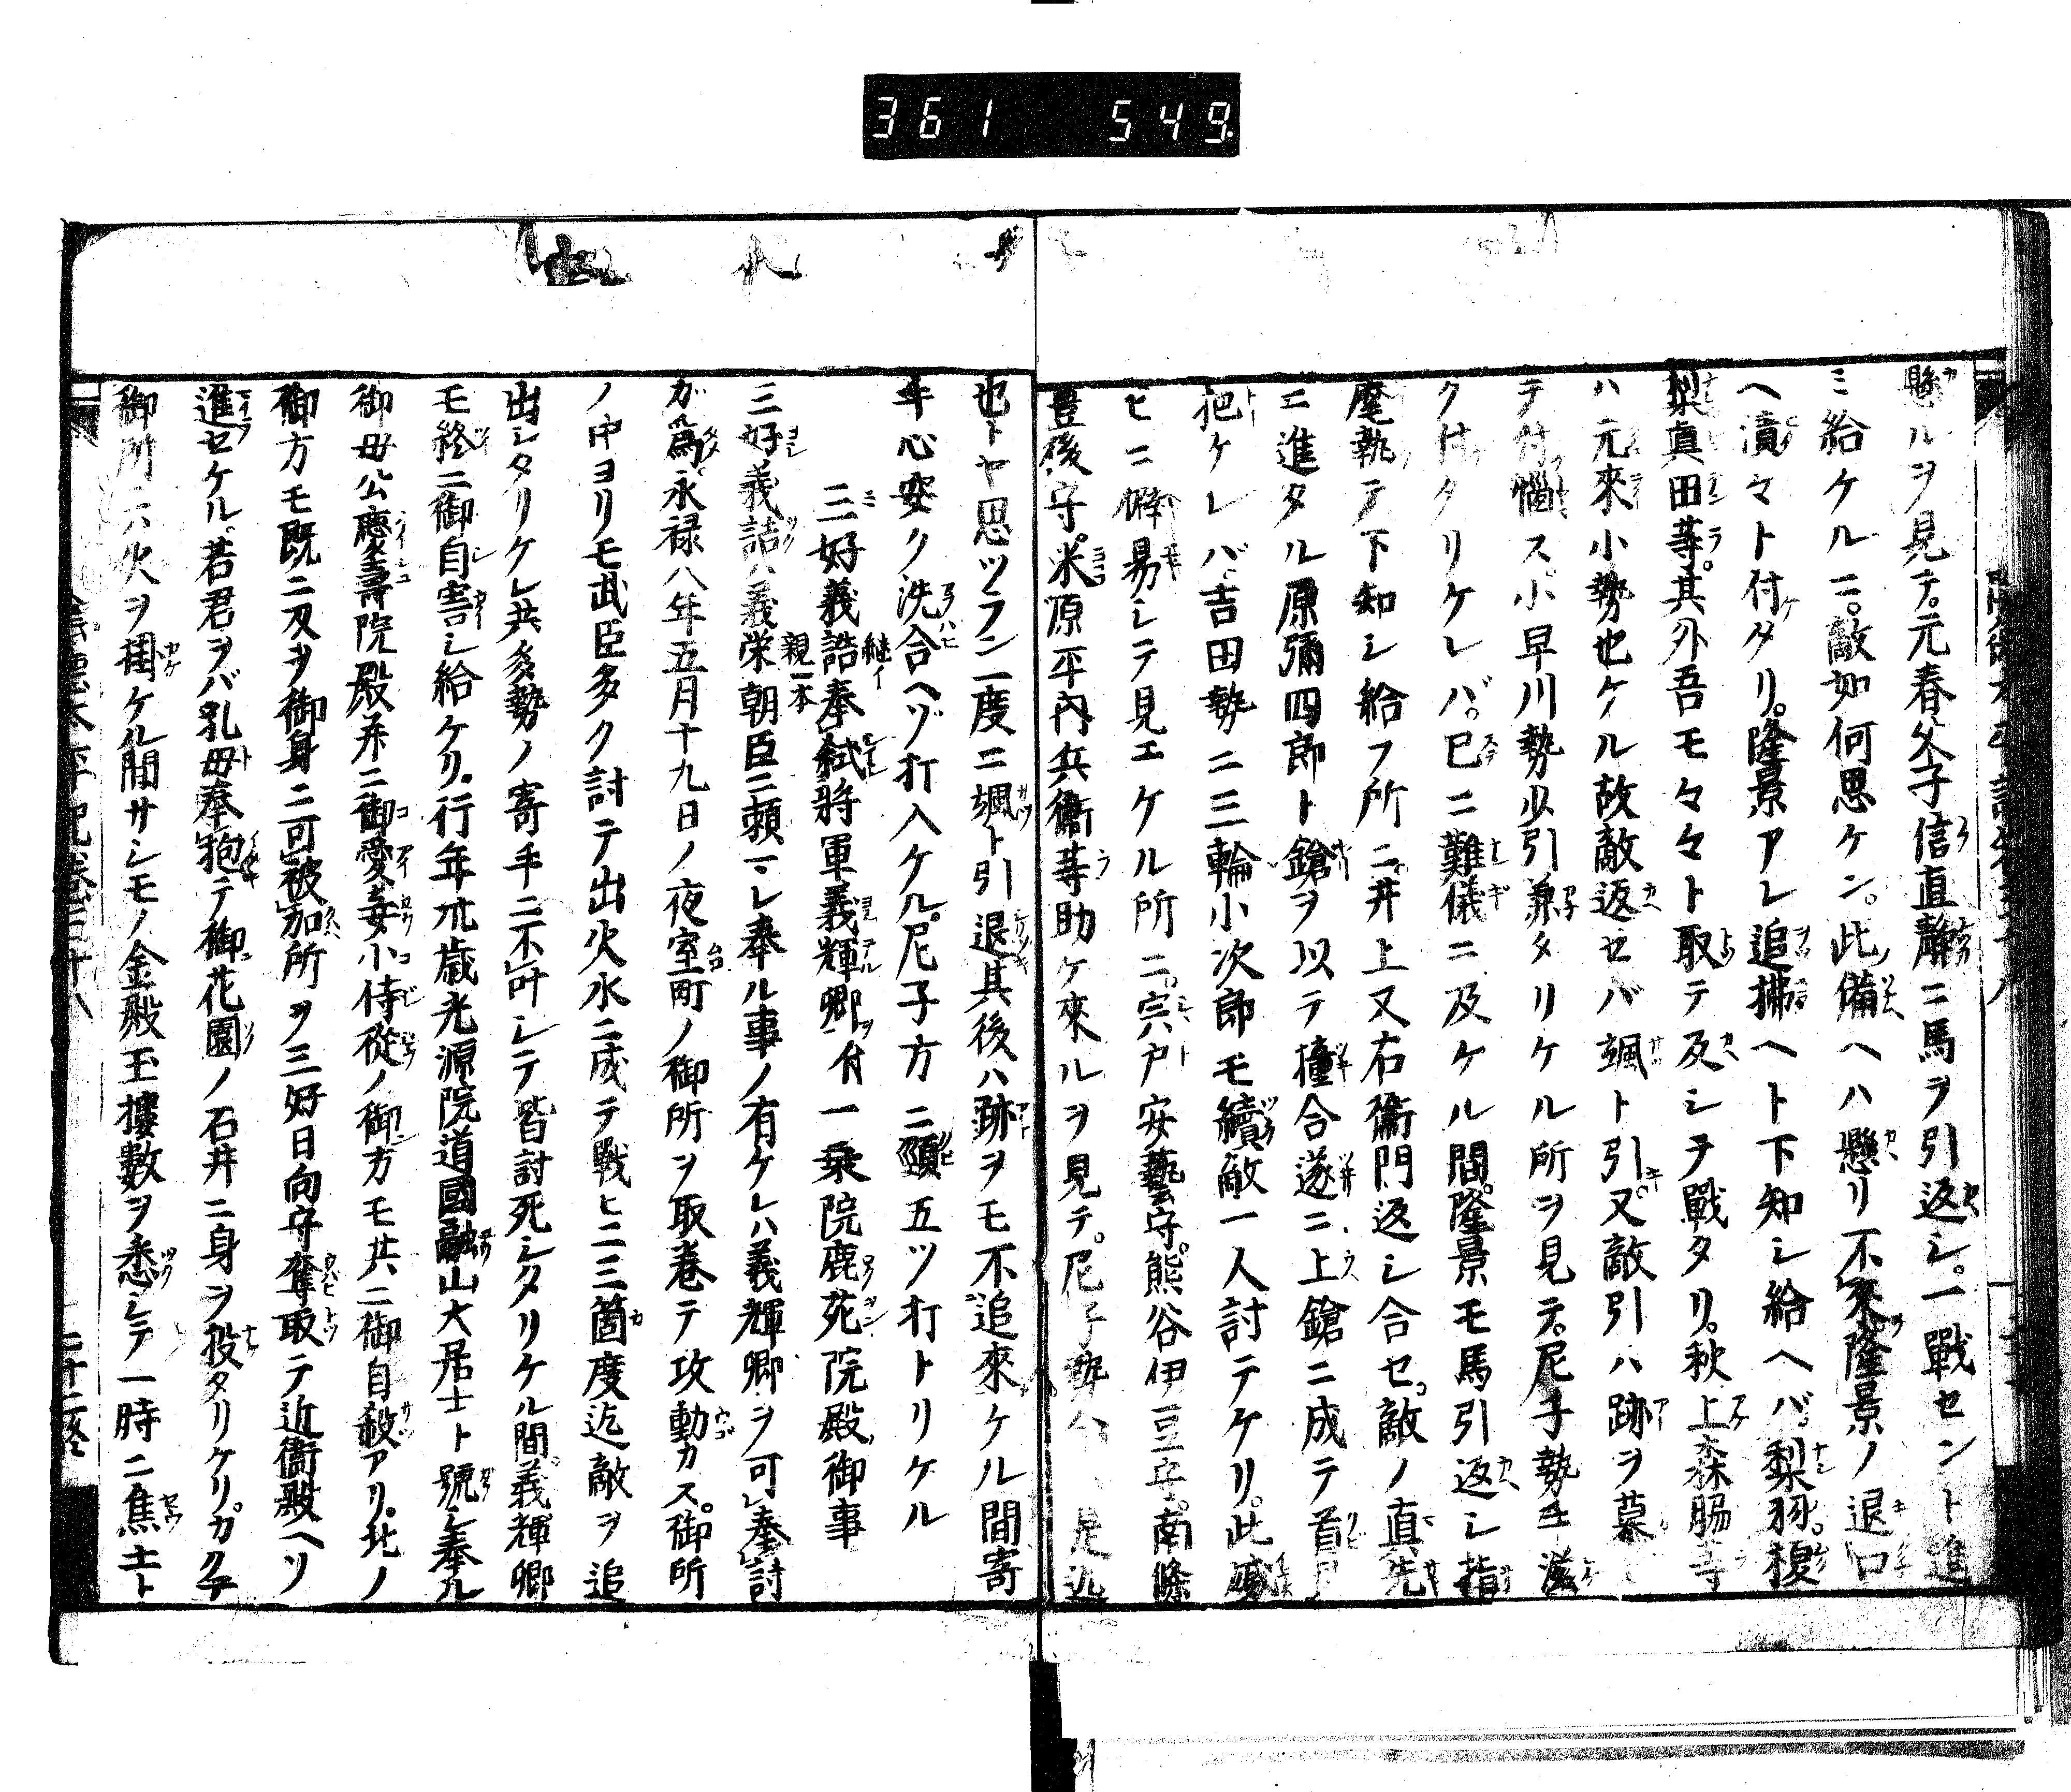 361 549
懸ルヲ見テ。元春父子信直靜ニ馬ヲ引返シ。一戰セント進
ミ給ケルニ。敵如何思ケン。此備ヘハ懸リ不來隆景ノ退口
ヘ漬々ト付タリ。隆景アレ追拂ヘト下知シ給ヘバ。梨羽。榎
梨真田等。其外吾モ々々ト取テ返シヲ戰タリ。秋上森脇等
ハ元來小勢也ケル故敵返セバ颯ト引又敵引ハ跡ヲ慕
テ付惱ス。小早川勢少引兼タリケル所ヲ見テ。尼子勢
ク付タリケレバ。巳ニ難儀ニ及ケル間。隆景モ馬引返シ指
麾執テ下知シ給フ所ニ。井上又右衞門返シ合セ。敵ノ直先
ニ進タル原彌四郎ト鎗ヲ以テ撞合遂ニ上鎗ニ成テ首
把ケレバ吉田勢ニ三輪小次郎モ續敵一人討テケリ。此
ヒニ僻易シテ見エケル所ニ。宍戸安藝守。熊谷伊豆守。南條
豊後守。米原平內兵衞等助ケ來ルヲ見テ。尼子勢今 是迄
也トヤ思ツラン一度ニ颯ト引退其後ハ跡ヲモ不追來ケル間寄
手心安ク洗合ヘヅ打入ケル。尼子方ニ頸五ツ打トリケル
三好義誥奉弑將軍義輝卿付一乗院鹿苑院殿御事
三好義詰ハ義栄朝臣ニ頼マレ奉ル事ノ有ケレハ義輝卿ヲ可奉討
ガ為永禄八年五月十九日ノ夜室町ノ御所ヲ取巻テ攻動カス。御所
ノ中ヨリモ武臣多ク討テ出火水ニ成テ戰ヒ二三箇度迄敵ヲ追
出シタリケレ共多勢ノ寄手ニ不叶シテ皆討死シタリケル間。義輝卿
モ終ニ御自害シ給ケリ。行年卅歳光源院道國融山大居士ト號シ奉ル
御母公慶壽院殿并ニ御愛妾小侍従ノ御方モ共ニ御自殺アリ。北ノ
御方モ既ニ刄ヲ御身ニ可被加所ヲ三好日向守奪取テ近衞殿ヘソ
進セケル。若君ヲバ乳母奉抱テ御花園ノ石井ニ身ヲ投タリケリ。カクテ
御所ニ火ヲ掛ケル間サシモノ金殿玉樓數ヲ悉シテ一時ニ焦土ト